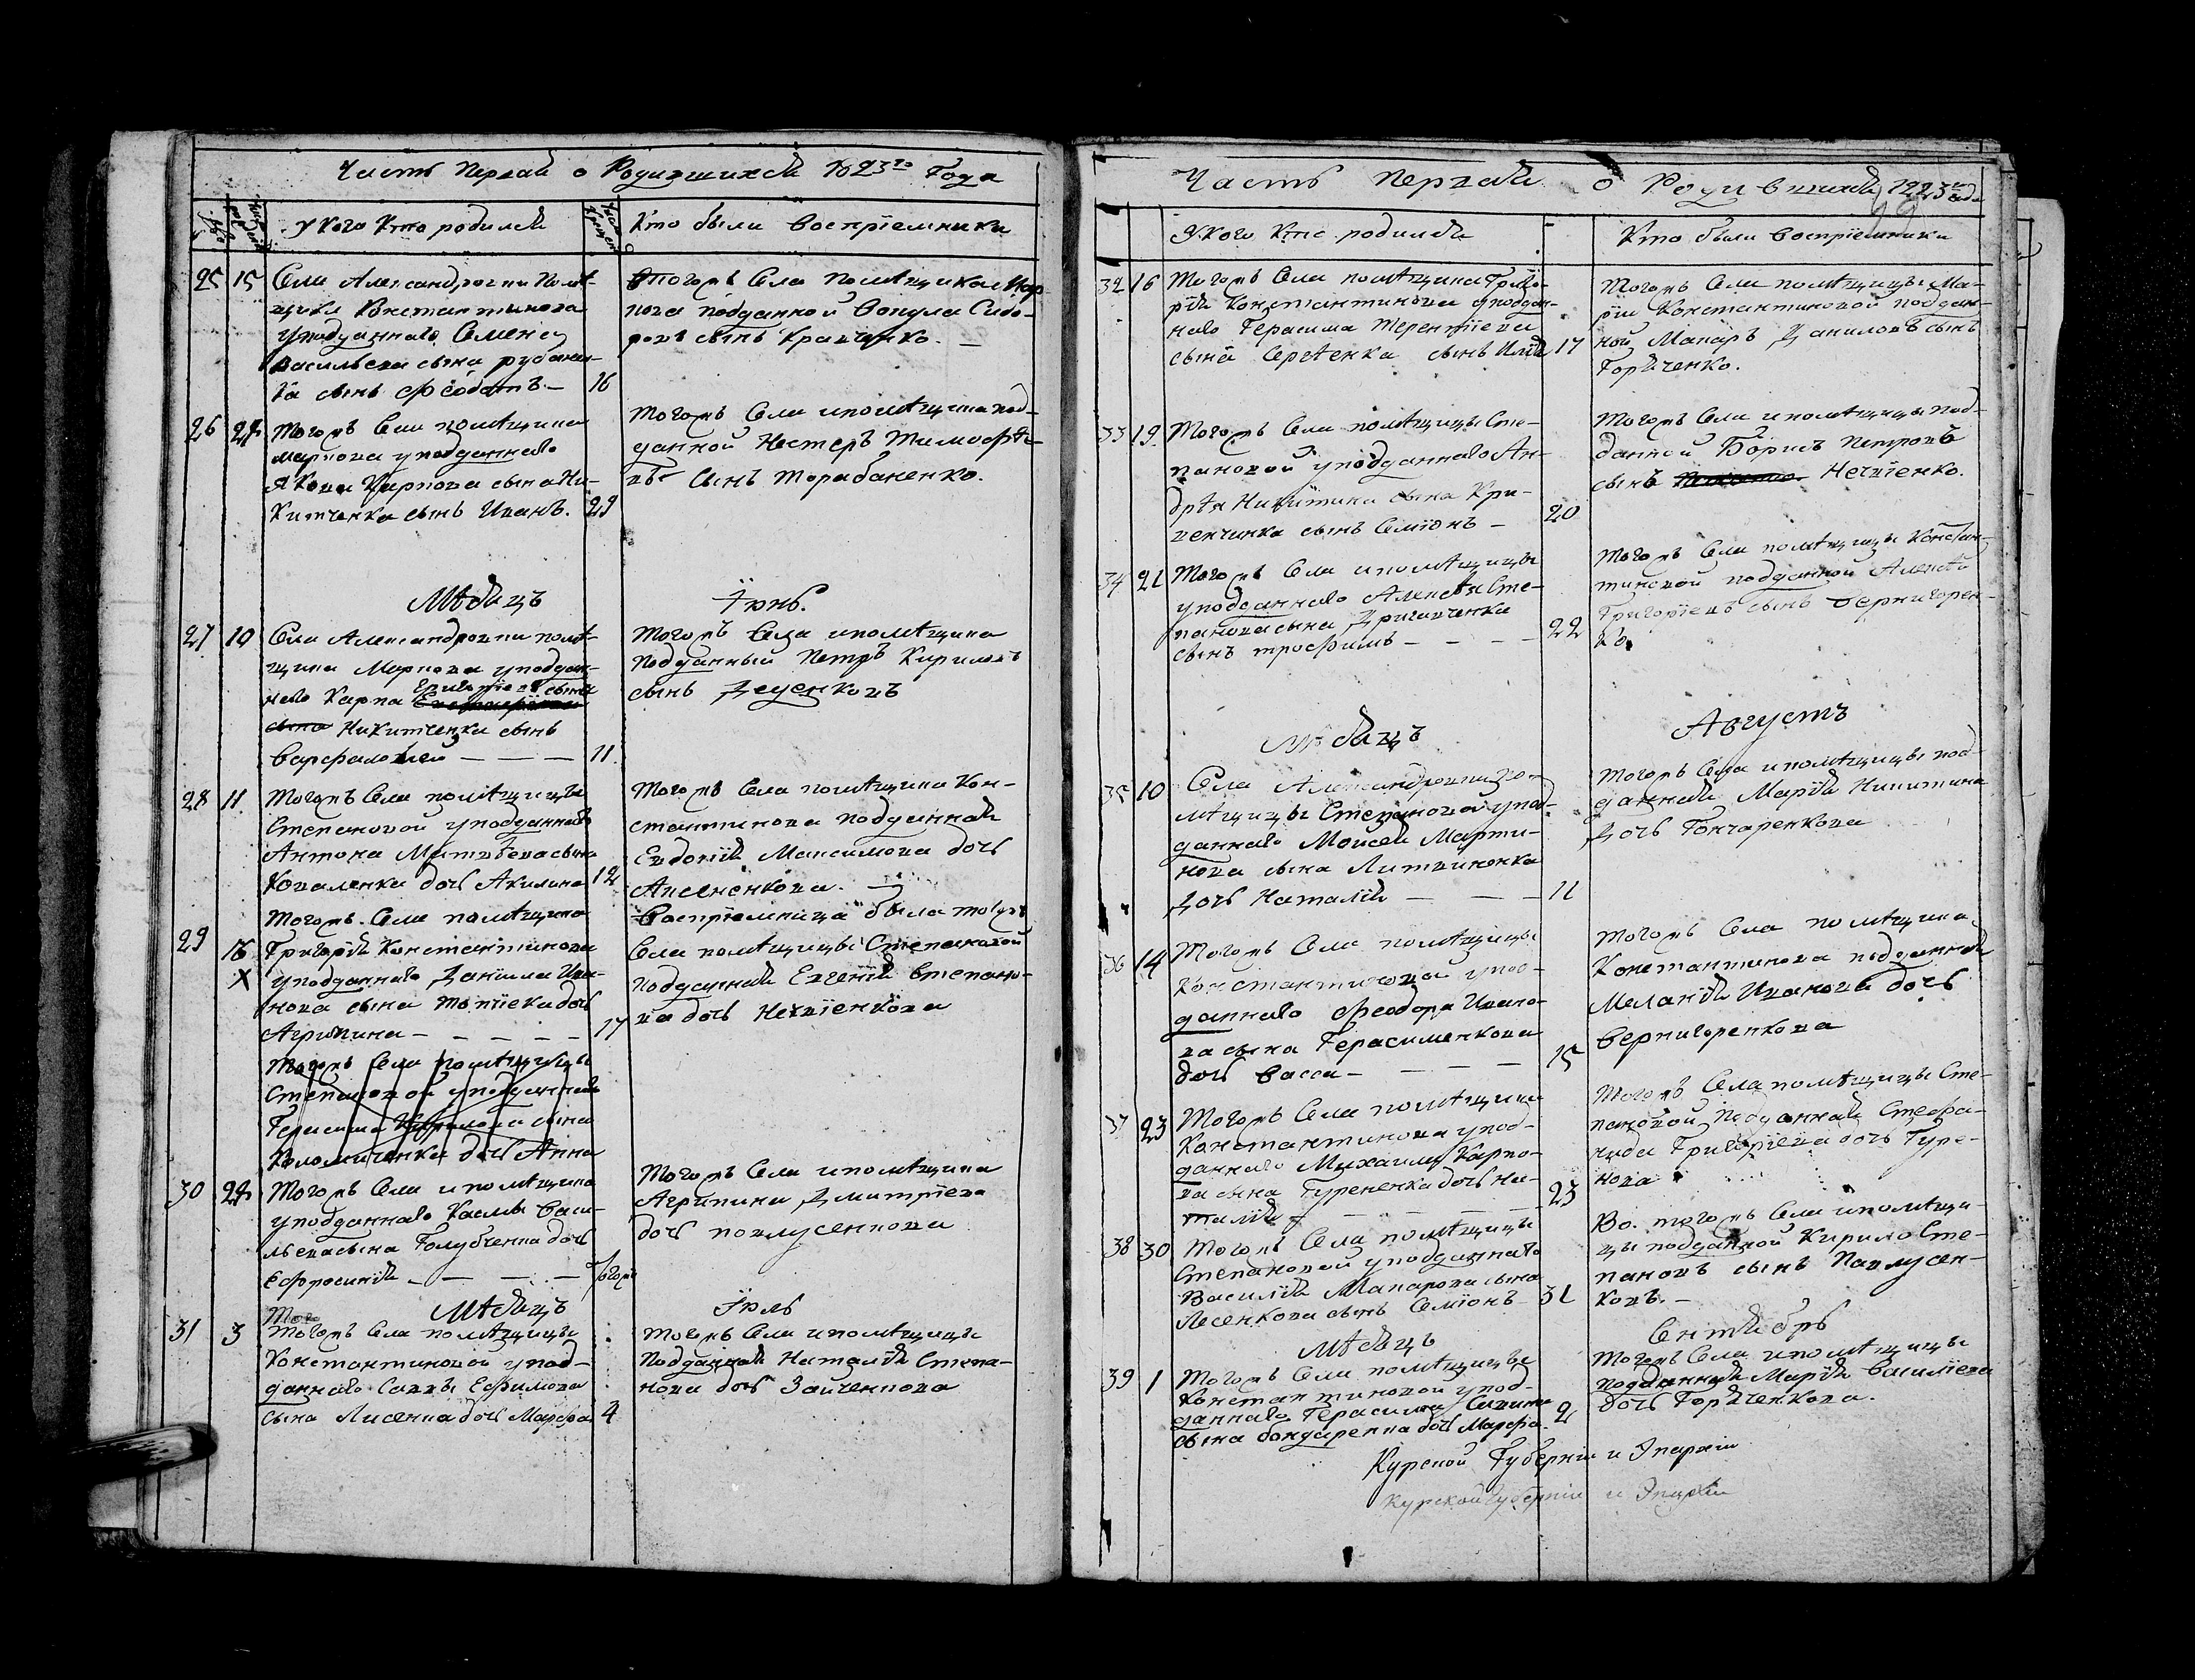 Часть Первая о Родившихся 1823го Года
У кого Кто родился
Кто были Воспріемники
25 15 Села Александровки Помѣ-
щика Константинова
у подданнаго Семена
Васильева сына рубанен-
ка сынъ Феодотъ. — 16
Тогожъ Села Помѣщика Мар-
кова подданной Вакула Сидо-
ровъ сынъ Кравченко. —
26 28 Тогожъ Села помѣщика
маркова у подданнаго
Якова Карпова сына Ни-
китченка сынъ Иванъ. 29
Тогожъ Села и помѣщика под-
данной Нестеръ Тимофѣе-
въ Сынъ Торабаненко.
Мѣсяцъ Іюнь.
27 10 Села Александровки помѣ-
щика Маркова у поддан-
наго Карпа Григоріева сына
сына Никитченка сынъ
Варфаломей — — — 11.
Тогожъ Села и помѣщика
Подданный Петръ Кириловъ
сынъ Деценковъ
28 11 Тогожъ Села помѣщицы
Степановой у подданнаго
Антона Матвѣева сына
Коваленка дочь Акилина 12
Тогожъ Села помѣщика Кон-
стантинова подданная
Евдокія Максимова дочь
Аксененкова.
29 16 Тогожъ Села помѣщика
Григорія Константинова
Х у подданнаго Данила Ива-
нова сына Топчіека дочь
Агрипина — — — — — 17
Воспріемница была тогожъ
Села помѣщицы Степановой
подданная Евгенія Степано-
ва дочь Нечвіенкова
Тогожъ Села помѣщицы
Степановой у подданнаго
Герасима сына
Коломийченка дочь Анна
30 28 Тогожъ Села и помѣщика
у подданнаго Касмы Васи-
льева сына Голубченка дочь
Ефросинія — — — — тогожъ
Тогожъ Села и помѣщика
Агрипина Дмитріева
дочь павлусенкова
Мѣсяцъ Іюль
31 3 Тогожъ Села помѣщицы
Константиновой у под-
даннаго Саввы Ефимова
сына Лисенка дочь Марфа 4
Тогожъ Села и помѣщицы
Подданная Наталія Степа-
нова дочь Зайченкова
Часть Первая о Родившихся 1823го года
У кого Кто родился
Кто были Воспріемники
32 16 Тогожъ Села помѣщика Григо-
рія Константинова у поддан-
наго Герасима Терентіева
сына Сергѣенка сынъ Илія 17
Тогожъ Села помѣщицы Ма-
ріи Константиновой поддан-
ной Макаръ Даниловъ сынъ
Горяченко.
33 19. Тогожъ Села помѣщицы Сте-
пановой у подданнаго Ан-
дрѣя Никитина сына Кри-
венчинка сынъ Семіонъ — 20
Тогожъ Села и помѣщицы под-
данной Борисъ Петровъ
сынъ Нечвіенко.
34 21 Тогожъ Села и помѣщицы
у подданнаго Алексѣя Сте-
панова сына
сынъ трофимъ — — — — 22
Тогожъ Села помѣщицы Констан-
тиновой подданной Алексѣй
Григоріевъ сынъ Вернигорен-
ко.
Мѣсяцъ Августъ
35 10 Села Александровки по-
мѣщицы Степановой у под-
даннаго Моисея Марти-
нова сына Литвиненка
Дочь Наталія — — — 11
Тогожъ Села и помѣщицы под-
данная Марія Никитина
Дочь Гончаренкова
36 14 Тогожъ Села помѣщицы
Константиновой у под-
даннаго Феодора Ивано-
ва сына Герасименкова
дочь Васса — — — — 15
Тогожъ Села помѣщика
Константинова подданная
Меланія Иванова дочь
Вернигоренкова
37 23 Тогожъ Села помѣщика
Константинова у под-
даннаго Михаила Карпо-
ва сына Гурененка дочь На-
талія — — — — — 23
Тогожъ Села помѣщицы Сте-
пановой Подданная Стефа-
нида Григоріева дочь Гуре-
нова
38 30 Тогожъ Села помѣщицы
Степановой у подданнаго
Василія Макарова сына
Лесенкова сынъ Семіонъ 31
Во. тогожъ Села и помѣщи-
цы подданной Кирило Сте-
пановъ сынъ Павлусен-
ковъ. —
Мѣсяцъ Сентябрь
39 1 Тогожъ Села помѣщицы
Константиновой у под-
даннаго Герасима Савина
сына бондаренка дочь Марфа. 2
Тогожъ Села и помѣщицы
подданная Марія Василіева
дочь Горяченкова.
Курской Губерніи и Эпархіи
Курской Губерніи и Эпархіи